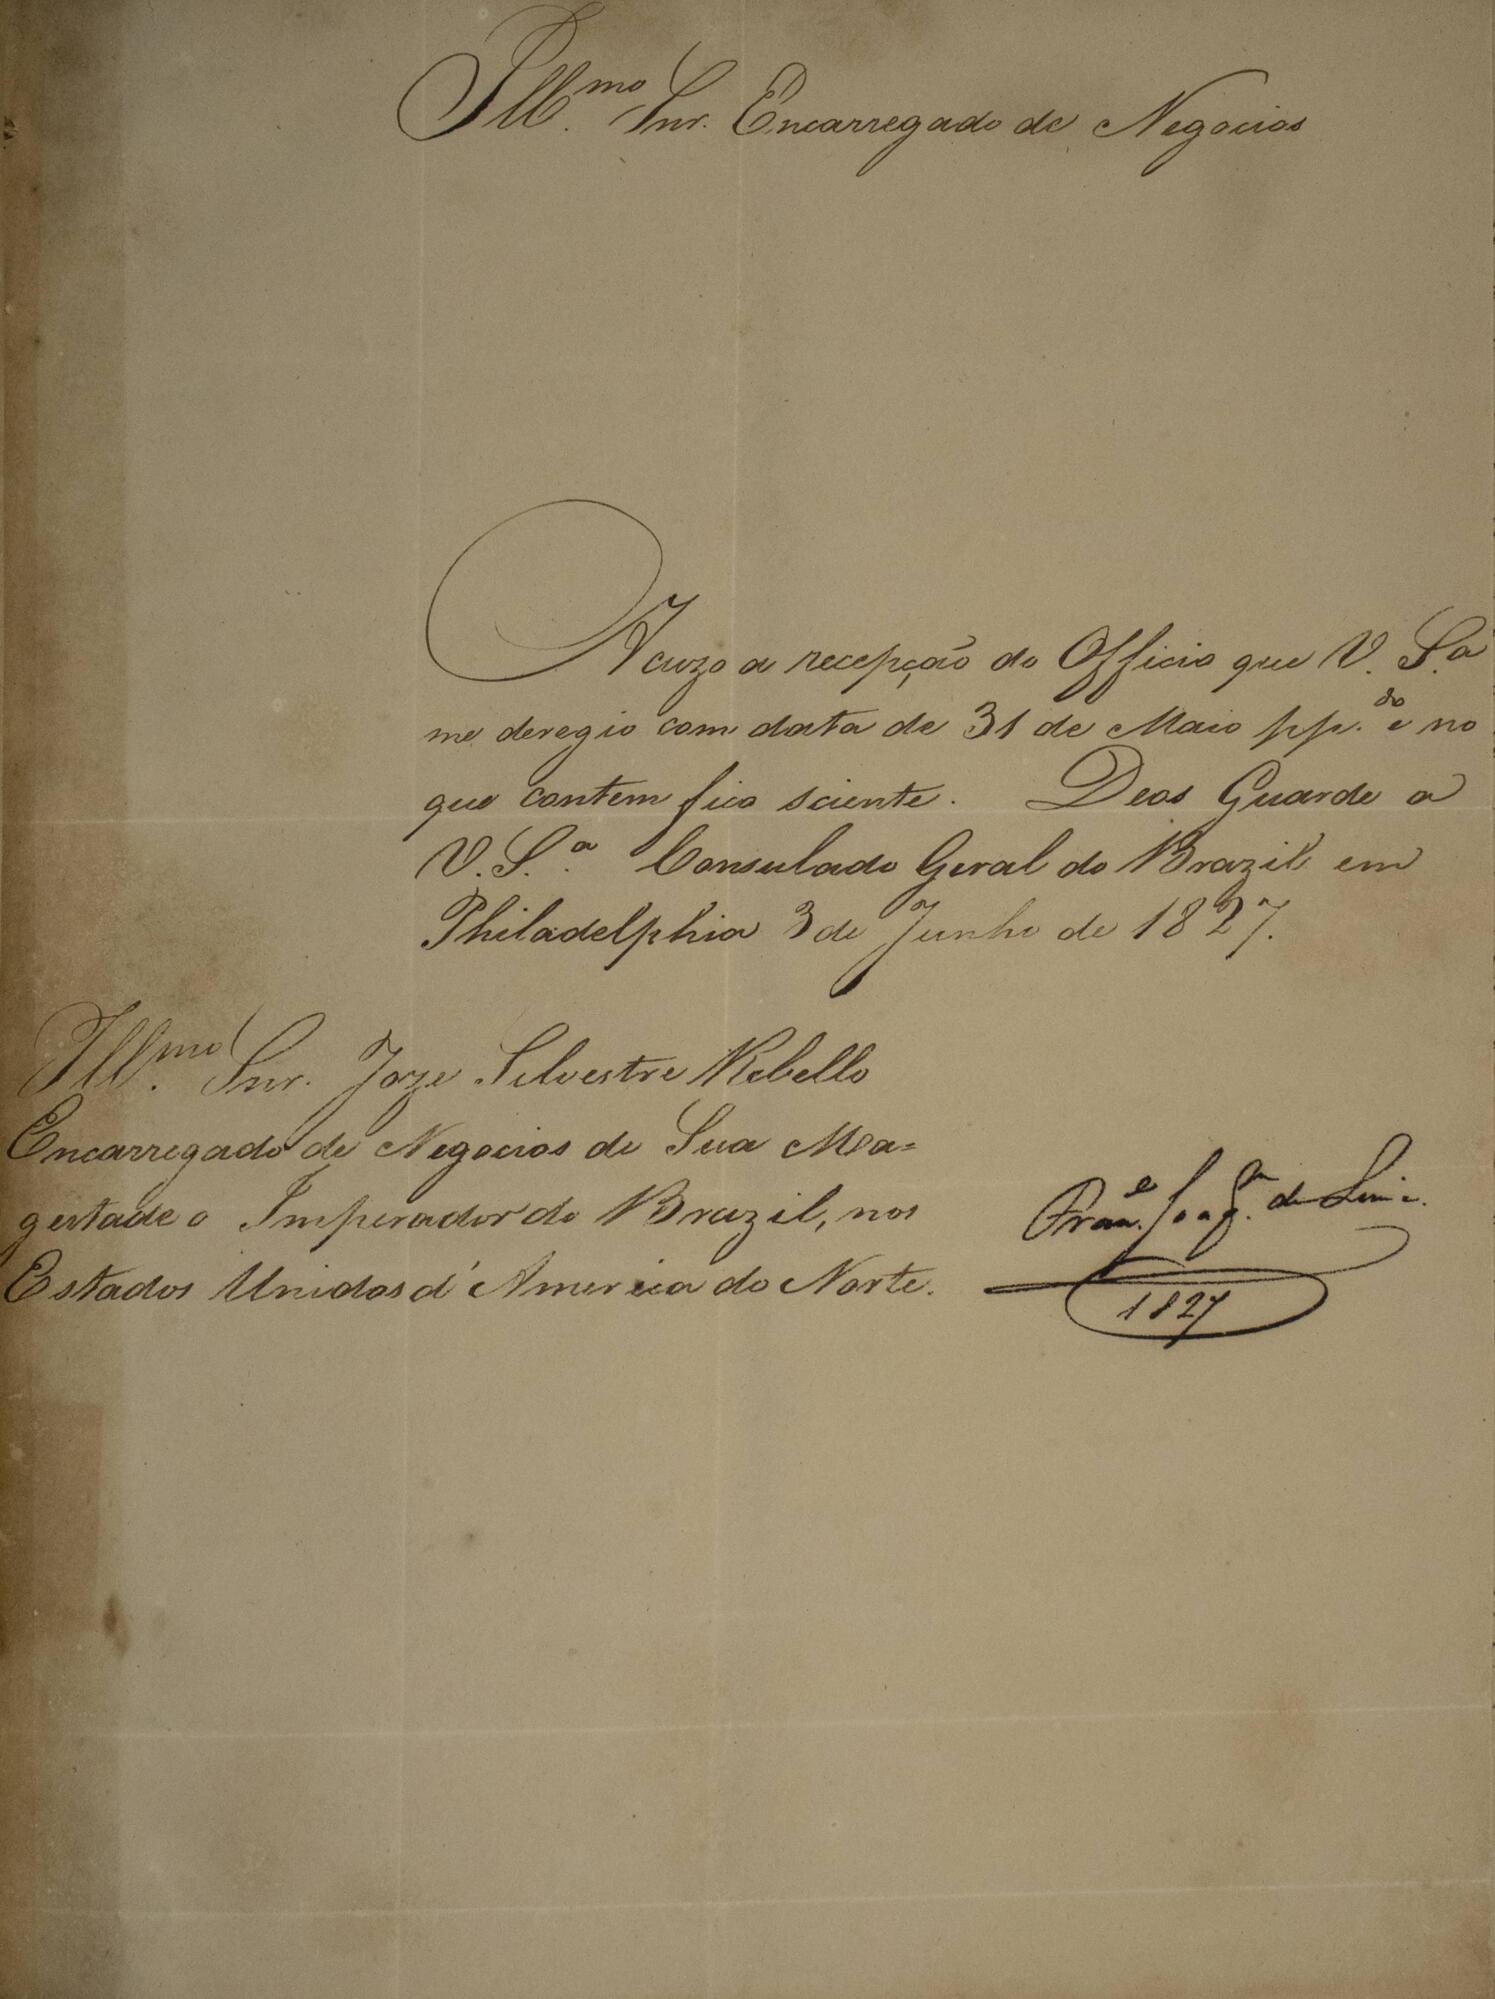 Ill.mo Snr. Encarregado de Negocios
Acuzo a recepção do Officio que V. S.a
me deregio com data de 31 de Maio pp.do e no
que contem fico sciente. Deos Guarde a
V. S.a Consulado Geral do Brazil em
Philadelphia 3 de Junho de 1827.
Ill.mo Snr. Joze Silvestre Rebello
Encarregado de Negocios de Sua Ma=
gestade o Imperador do Brazil, nos
Estados Unidos d'America do Norte.
Joaq.m de
1827